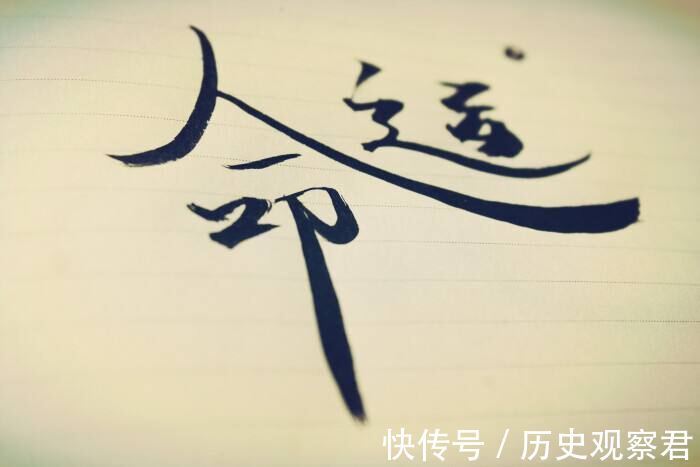 命运
快传号／历史观察君